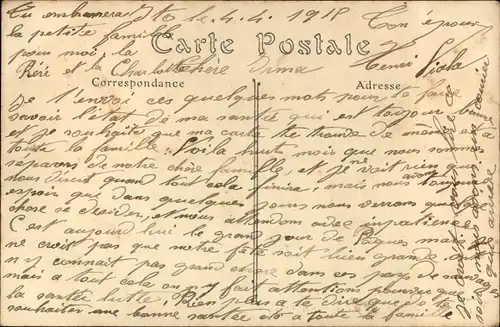 Tu embrassera
la petite famille
pour moi, la
Réré et la Charlotte
le 4.4.1918
Ton époux
Henri Viola
Carte Postale
Correspondance
Adresse
Chère Irma
Je t'envoi ces quelques mots pour te faire
savoir l'état de ma santé qui est toujour bonne
et je souhaite que ma carte te trouve de même
toute la famille. Voila huits mois que nous sommes
separés de notre chère famille, et je ne voit rien que
nous disent quand tout cela finira, mais nous avons toujours
espoir que dans quelques jours nous verrons quelques
chose se desider, et nous attendons avec impatience
C'est aujourd'hui le grand jour de Pâques mais
ne croit pas que notre fête soit bien grande, car
n'y connait pas grand chose dans ces pays de sauvages
mais a tout cela on ny fait attentions pourvue que
la santée lutte. Rien plus a te dire que de te
souhaiter une bonne santée ets à toute la famille